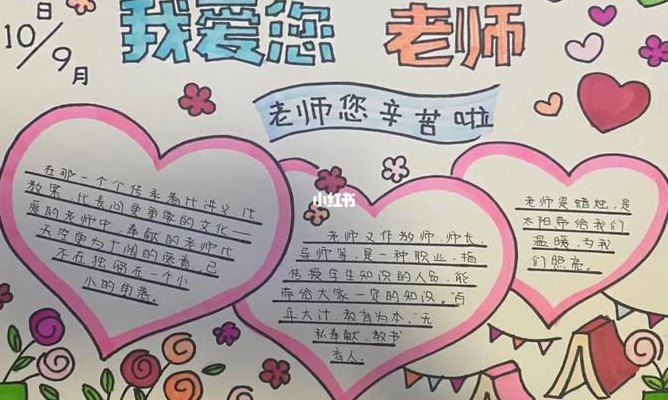 日
10/9月
我爱您 老师
老师您辛苦啦
在那一个个传承着比讲义比
效果、比表问更重要的文化一
爱的老师中,奉献的老师比
天空更为广阔的胸膏,已
不在独留在一个小
小的角落。
小红书
老师又作教师,师长,
导师等,是一种职业,指
传授学生知识的人员,能
带给大家一定的知识。"百
年大计,教育为本,"无
私奉献,教书
育人。
老师是蜡烛,是
太阳带给我们
温暖,为我
们照亮。